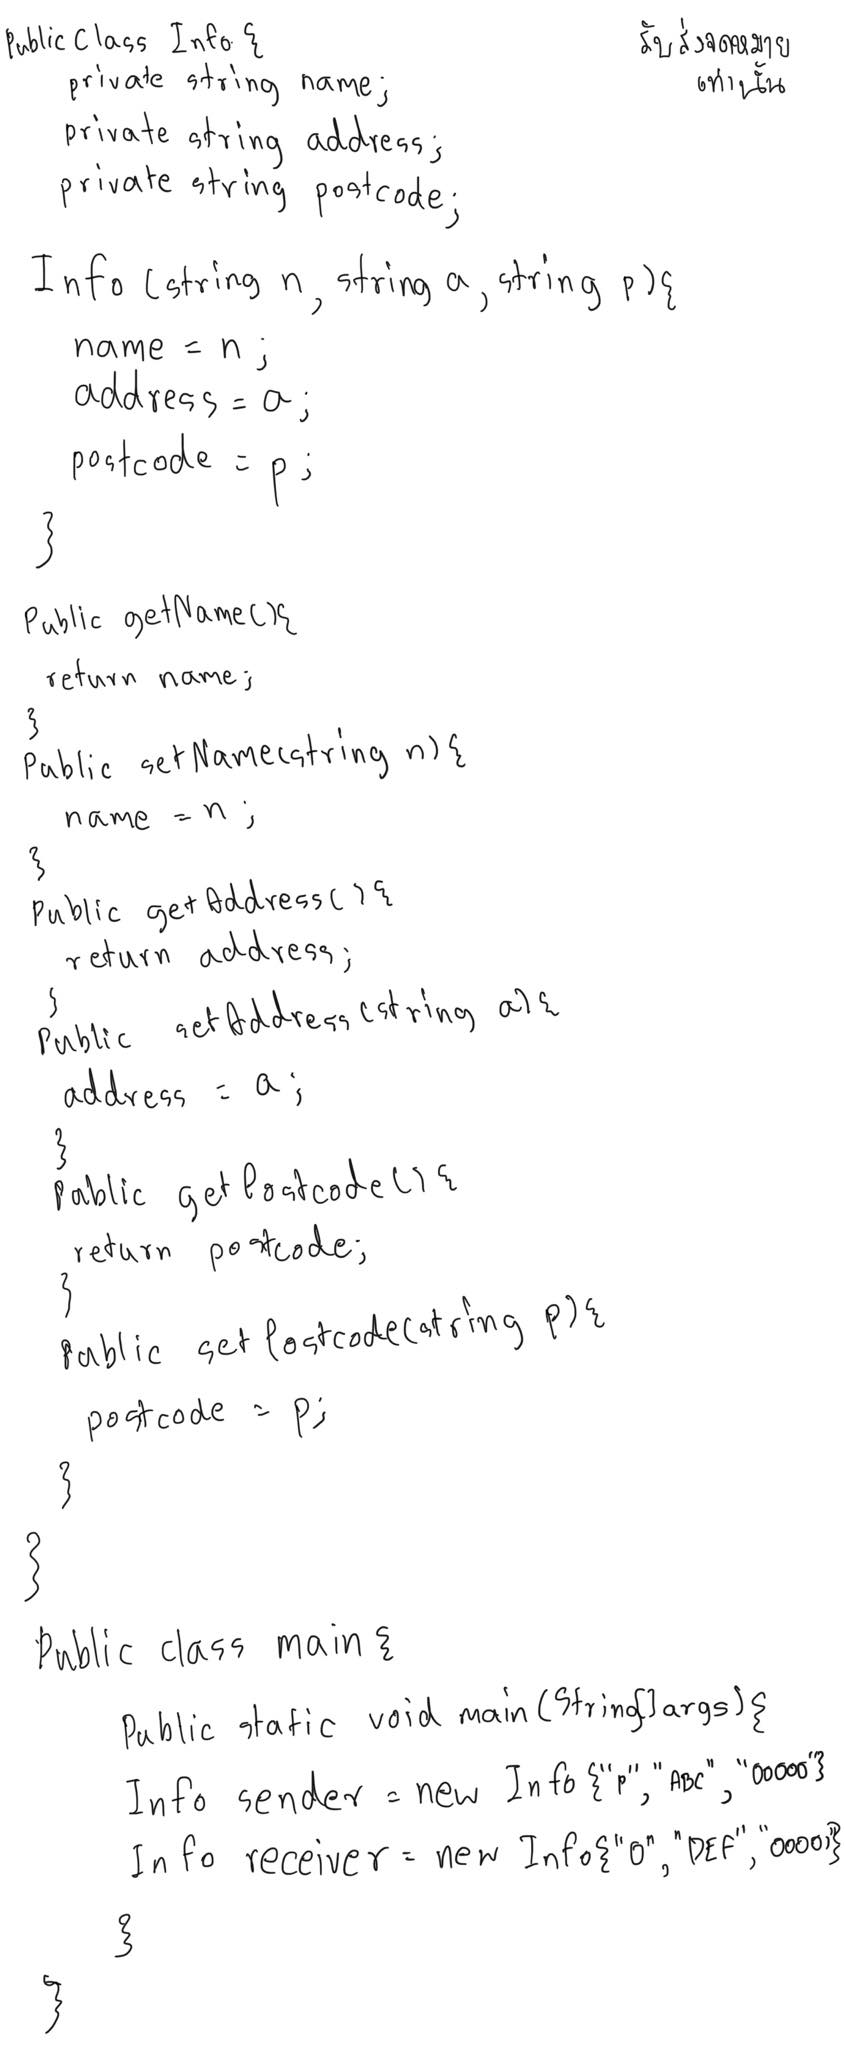 Public Class Info {
รับส่งจดหมาย
เท่านั้น
private string name;
private string address;
private string postcode;
Info (string n, string a, string p){
name = n;
address = a;
postcode = p;
}
Public getName(){
return name;
}
Public setName(string n){
name = n;
}
Public getAddress(){
return address;
}
Public setAddress(string a){
address = a;
}
Public getPostcode(){
return postcode;
}
Public setPostcode(string p){
postcode = p;
}
}
Public class main {
Public static void main (String[] args){
Info sender = new Info {"P", "ABC", "00000"}
Info receiver = new Info{"O", "DEF", "00001"}
}
}